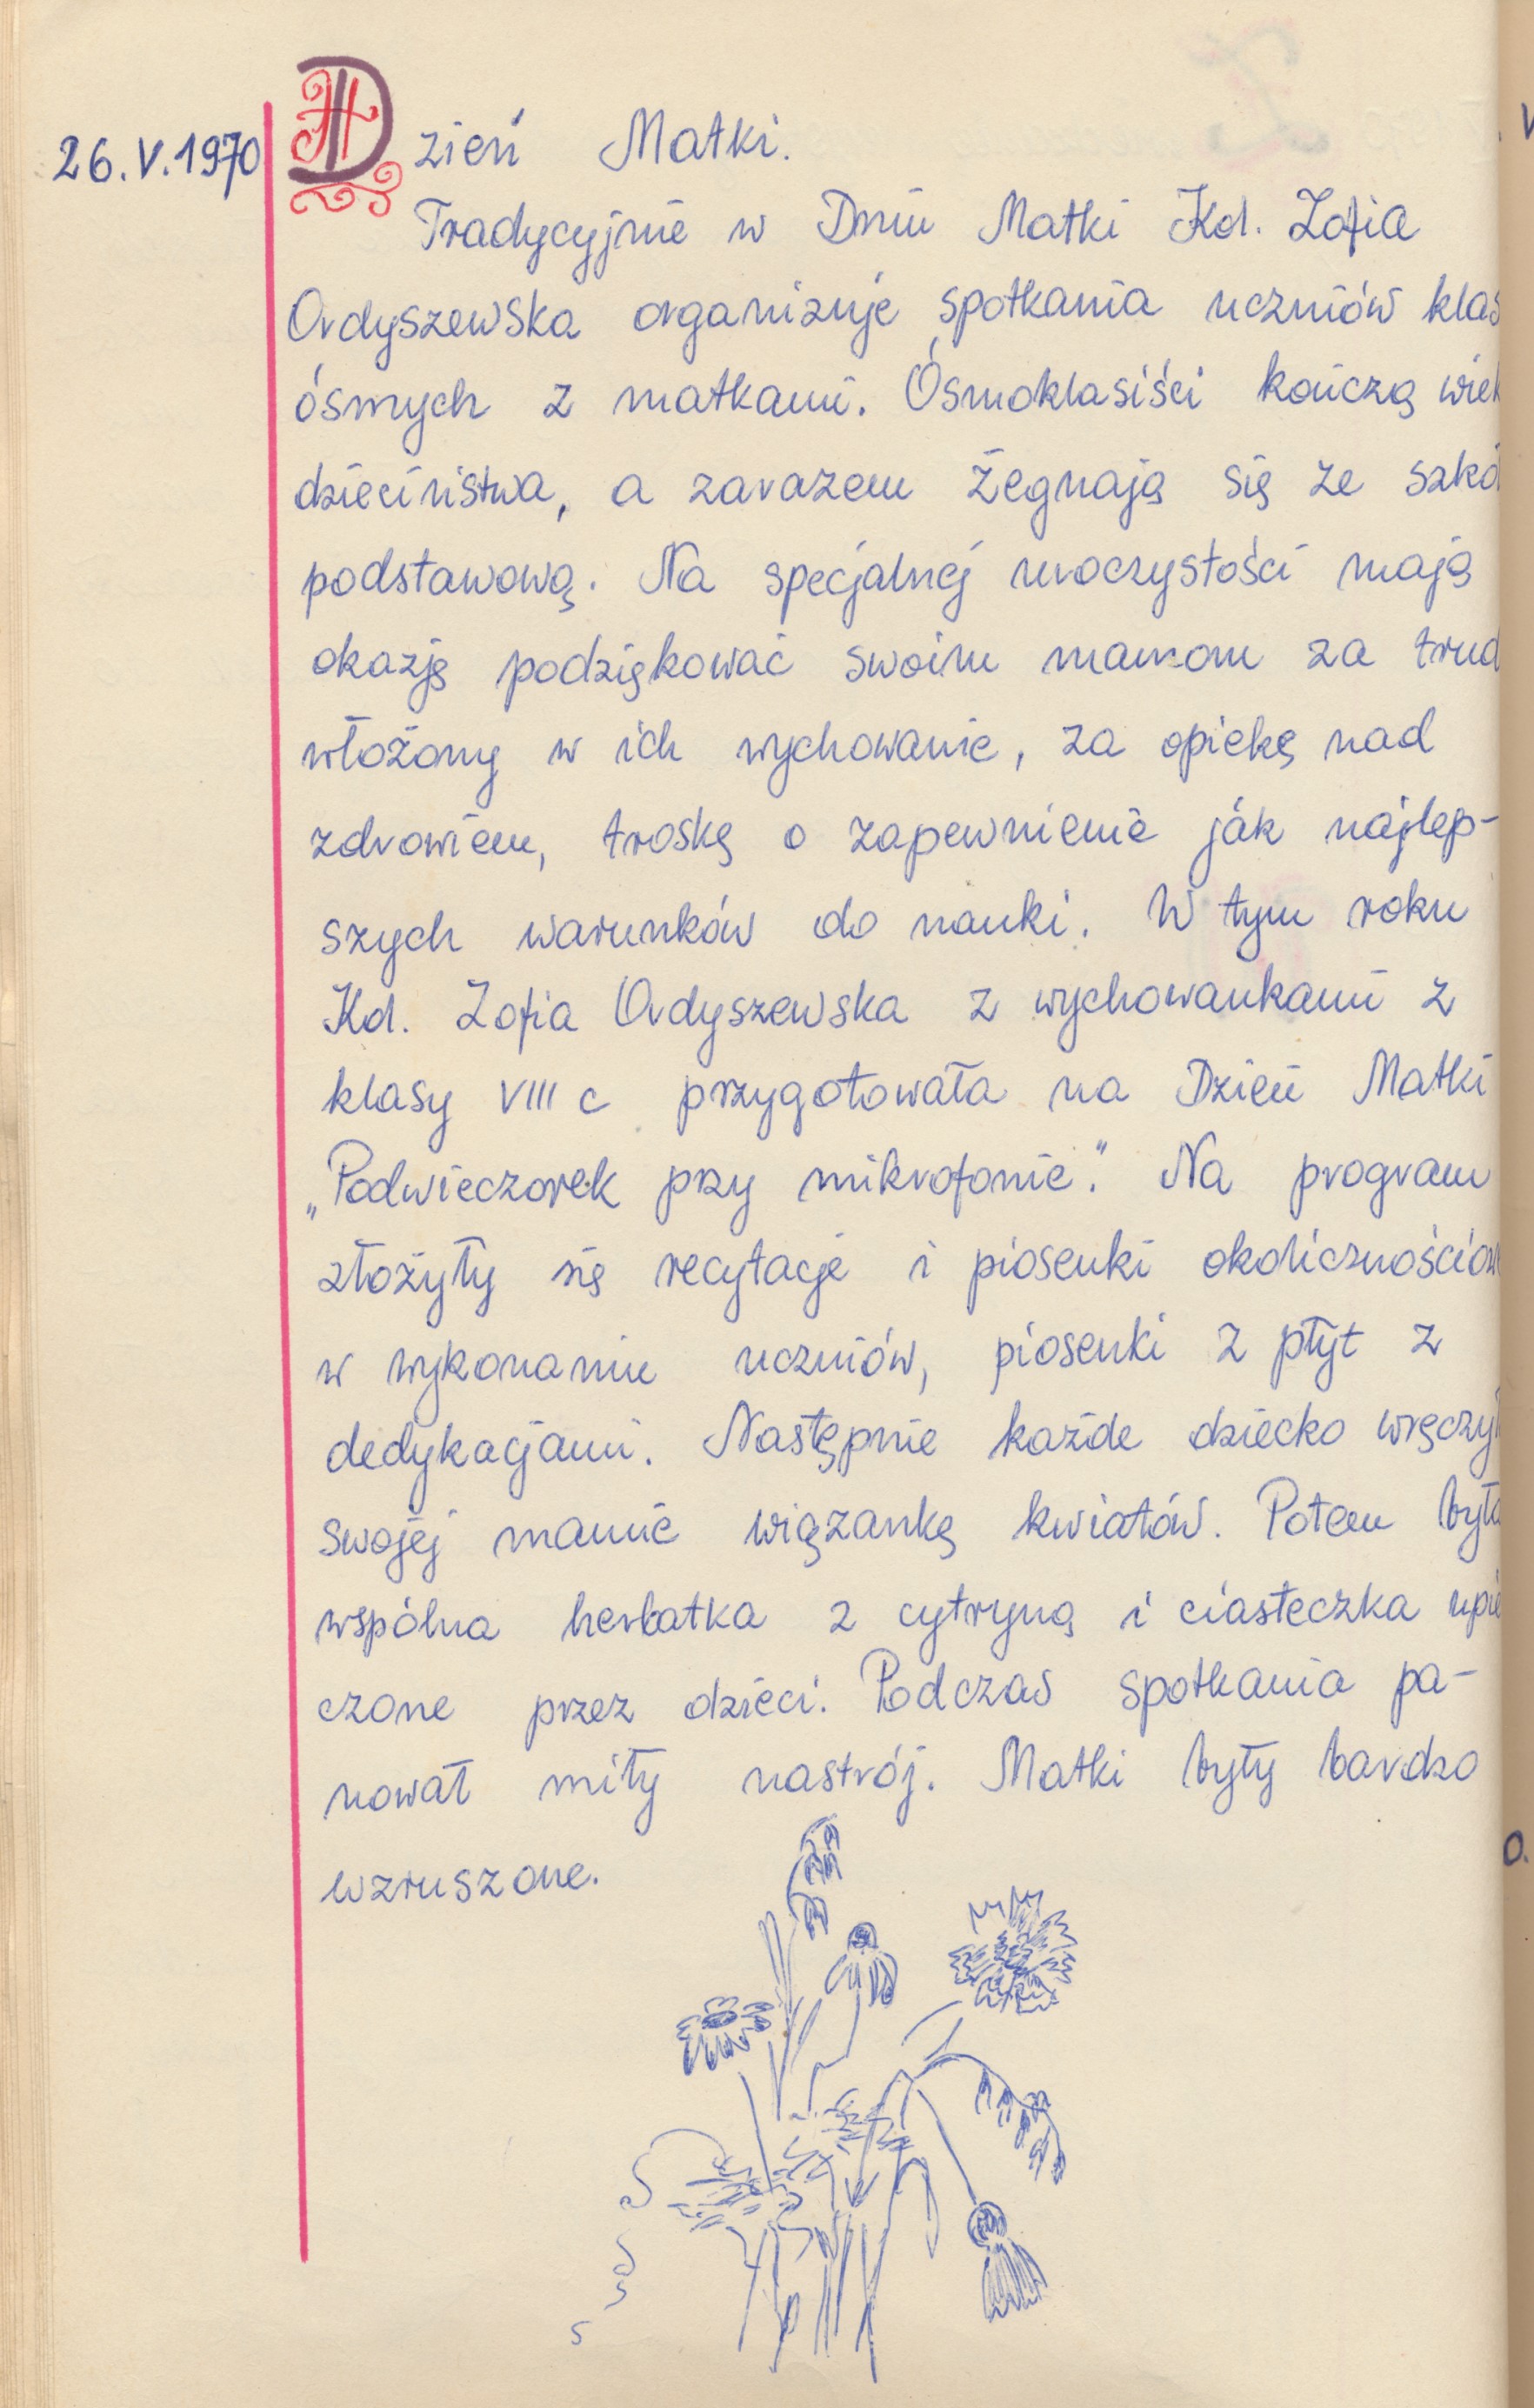 26.V.1970 Dzień Matki.
Tradycyjnie w Dniu Matki Kol. Zofia
Ordyszewska organizuje spotkania uczniów klas
ósmych z matkami. Ósmoklasiści kończą wiek
dzieciństwa, a zarazem żegnają się ze szkó
podstawową. Na specjalnej uroczystości mają
okazję podziękować swoim mamom za trud
włożony w ich wychowanie, za opiekę nad
zdrowiem, troskę o zapewnienie jak najlep-
szych warunków do nauki. W tym roku
Kol. Zofia Ordyszewska z wychowankami z
klasy VIII c przygotowała na Dzień Matki
„Podwieczorek przy mikrofonie”. Na program
złożyły się recytacje i piosenki okolicznościow
w wykonaniu uczniów, piosenki z płyt z
dedykacjami. Następnie każde dziecko wręczył
swojej mamie wiązankę kwiatów. Potem była
wspólna herbatka z cytryną i ciasteczka upie
czone przez dzieci. Podczas spotkania pa-
nował miły nastrój. Matki były bardzo
wzruszone.